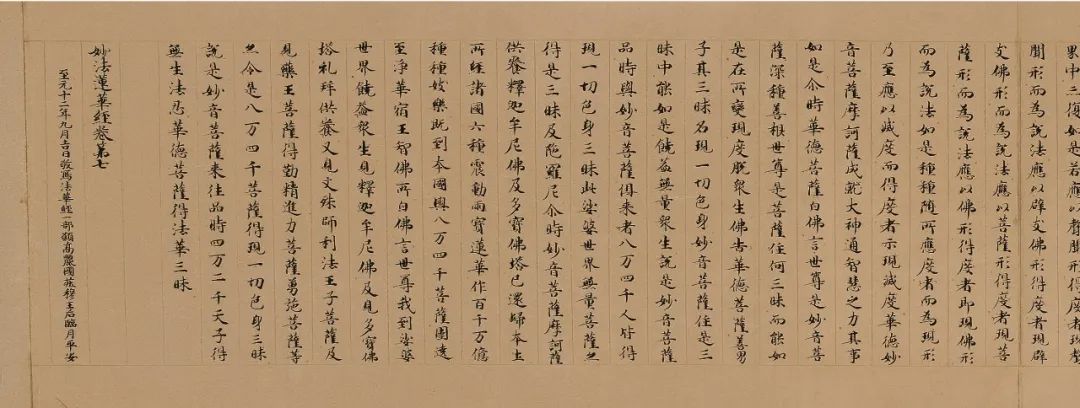 界中亦復如是若應以聲聞形得度者現聲
聞形而為說法應以辟支佛形得度者現辟
支佛形而為說法應以菩薩形得度者現菩
薩形而為說法應以佛形得度者即現佛形
而為說法如是種種隨所應度者而為現形
乃至應以滅度而得度者示現滅度華德妙
音菩薩摩訶薩成就大神通智慧之力其事
如是尒時華德菩薩白佛言世尊是妙音菩
薩深種善根世尊是菩薩住何三昧而能如
是在所變現度脫眾生佛告華德菩薩善男
子其三昧名現一切色身妙音菩薩住是三
昧中能如是饒益無量眾生說是妙音菩薩
品時與妙音菩薩俱來者八万四千人皆得
現一切色身三昧此娑婆世界無量菩薩亦
得是三昧及陁羅尼尒時妙音菩薩摩訶薩
供養釋迦牟尼佛及多寶佛塔已還歸本土
所經諸國六種震動雨寶蓮華作百千万億
種種妓樂既到本國與八万四千菩薩圍遶
至淨華宿王智佛所白佛言世尊我到娑婆
世界饒益眾生見釋迦牟尼佛及見多寶佛
塔礼拜供養又見文殊師利法王子菩薩及
見藥王菩薩得勤精進力菩薩勇施菩薩等
亦令是八万四千菩薩得現一切色身三昧
說是妙音菩薩來往品時四万二千天子得
無生法忍華德菩薩得法華三昧
妙法蓮華經卷第七
至元十二年九月吉日敬寫法華經一部願高麗國莊穆王后臨月平安